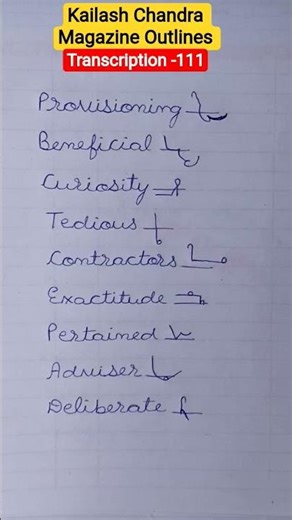 Kailash Chandra
Magazine Outlines
Transcription -111
Provisioning
Beneficial
Curiosity
Tedious
Contractors
Exactitude
Pertained
Adviser
Deliberate